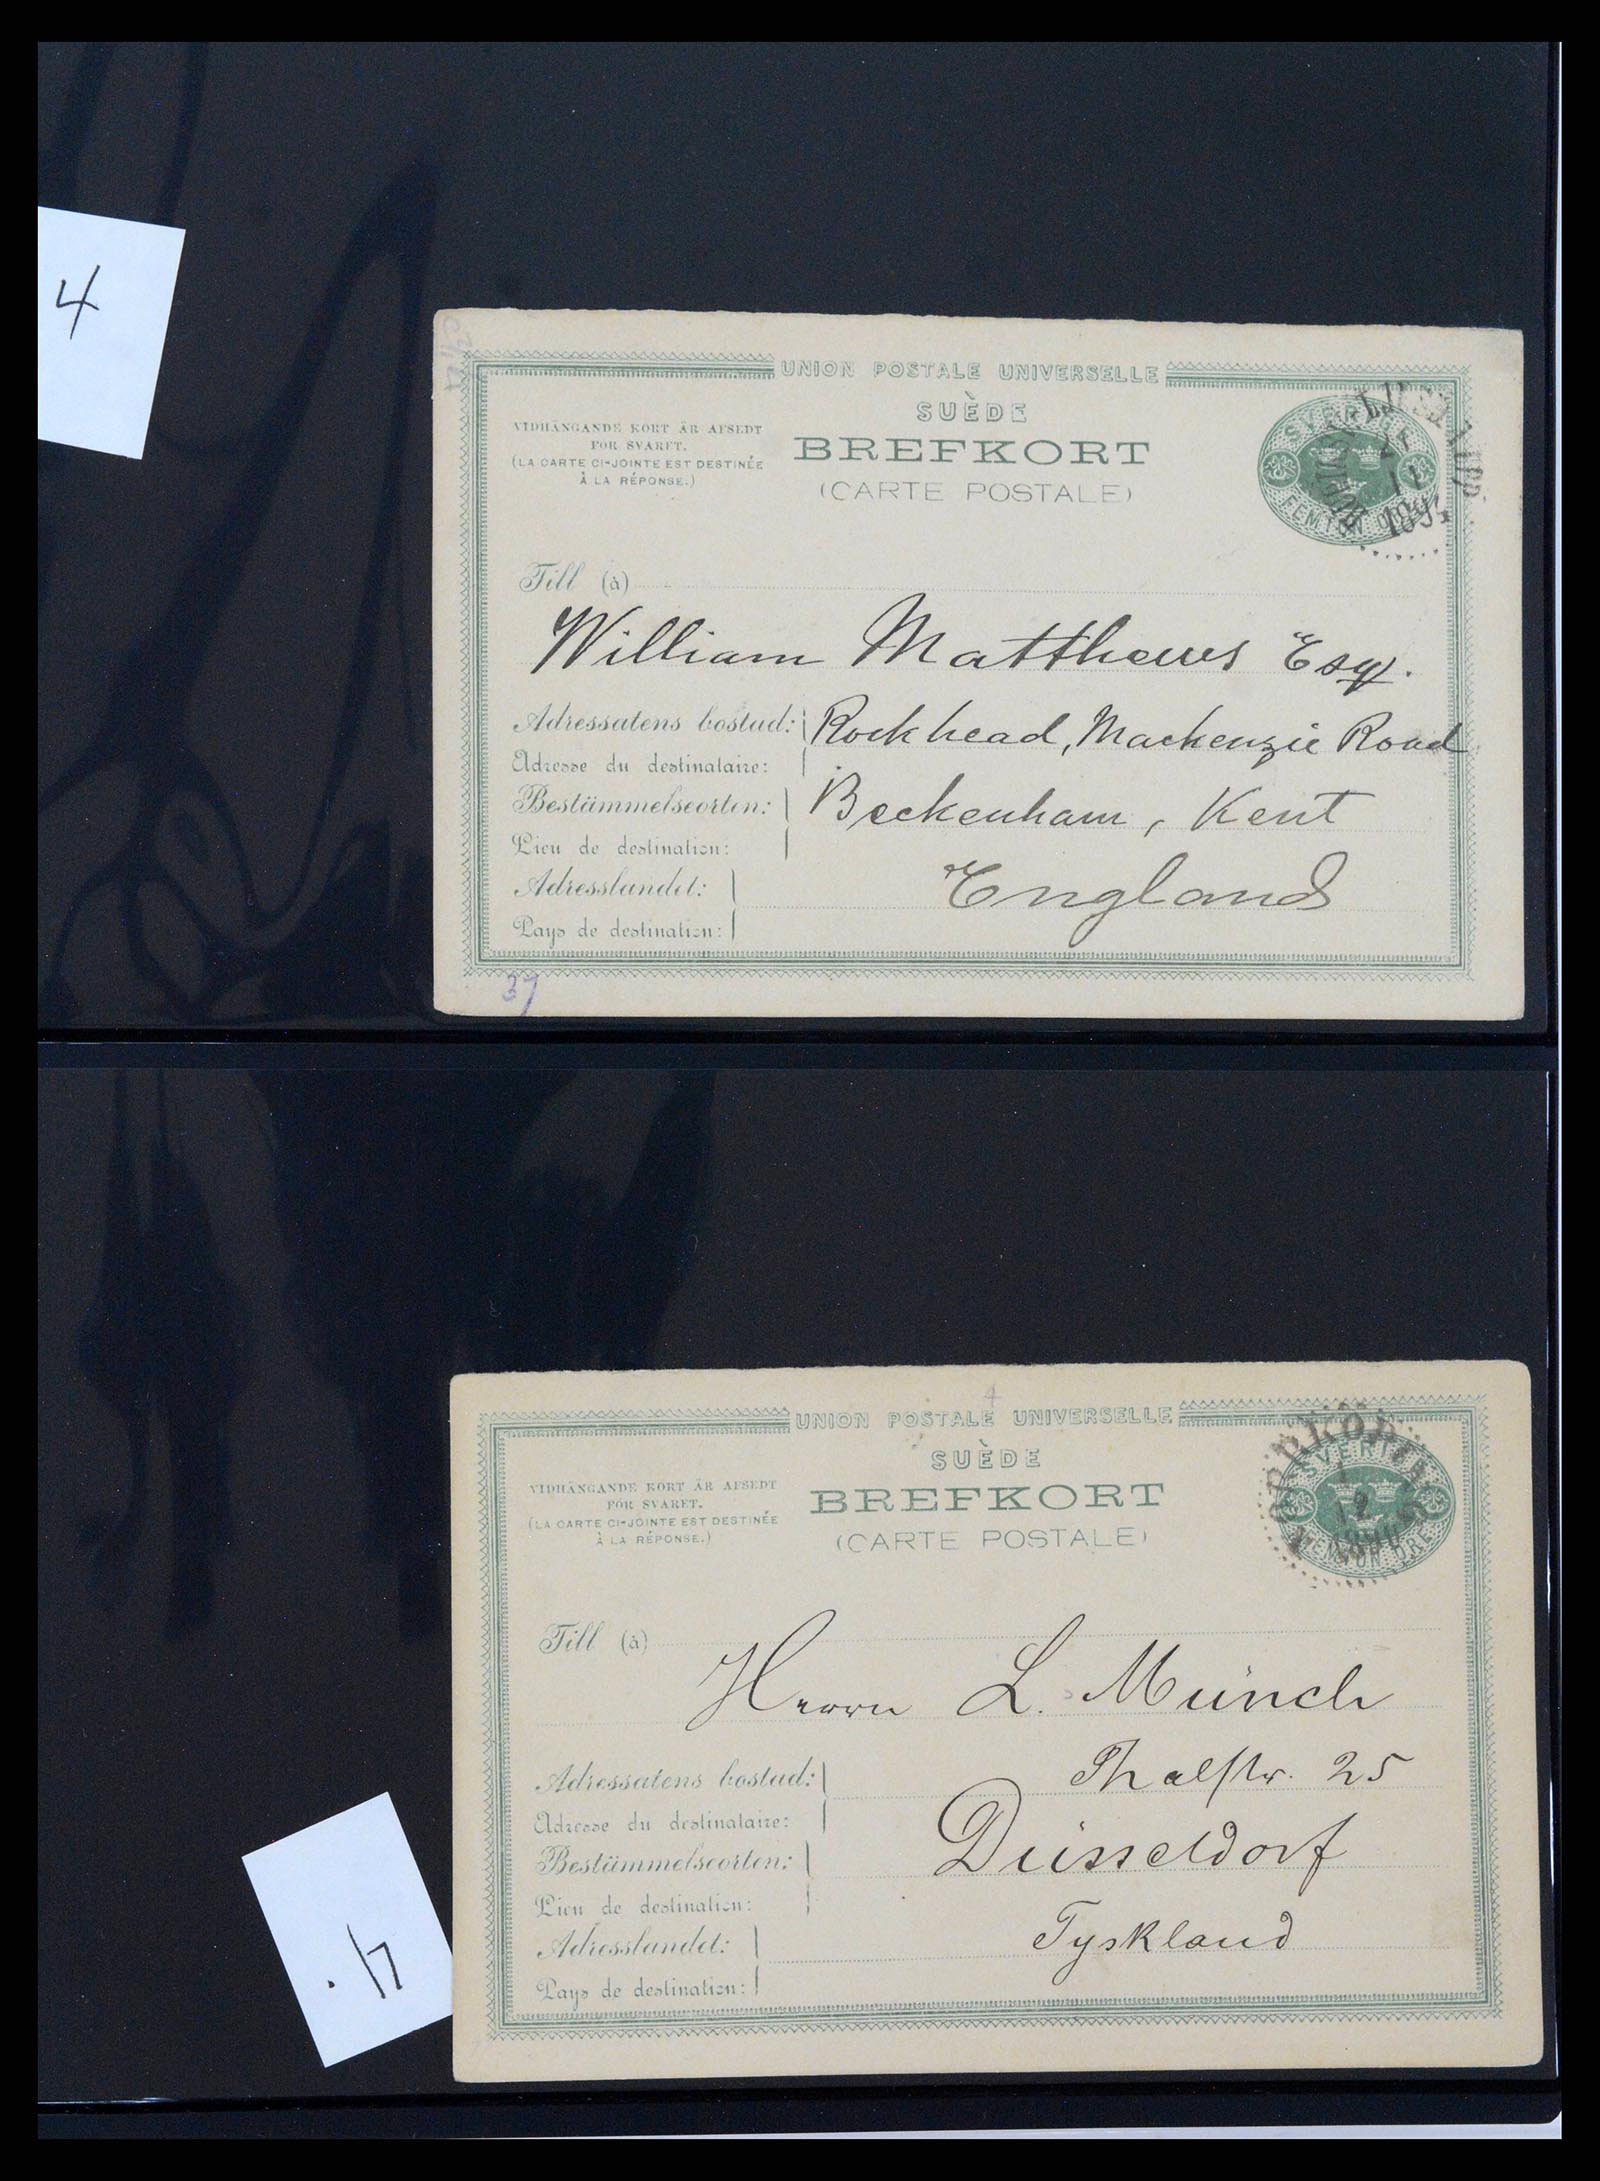 4
UNION POSTALE UNIVERSELLE
SUÈDE
VIDHÄNGANDE KORT ÄR AFSEDT
FÖR SVARET.
(LA CARTE CI-JOINTE EST DESTINÉE
À LA RÉPONSE.)
BREFKORT
(CARTE POSTALE)
SVERIGE
FEMTON ÖRE
Till (à)
William Matthews Esq.
Adressatens bostad: Rockhead, Mackenzie Road
Adresse du destinataire:
Bestämmelseorten: Beckenham, Kent
Lieu de destination:
Adresslandet: England
Pays de destination:
37
4
UNION POSTALE UNIVERSELLE
SUÈDE
VIDHÄNGANDE KORT ÄR AFSEDT
FÖR SVARET.
(LA CARTE CI-JOINTE EST DESTINÉE
À LA RÉPONSE.)
BREFKORT
(CARTE POSTALE)
SVERIGE
12
FEMTON ÖRE
Till (à)
Herrn L. Münch
Adressatens bostad: Thalstr. 25
Adresse du destinataire:
Bestämmelseorten: Düsseldorf
Lieu de destination:
Adresslandet: Tyskland
Pays de destination:
4.